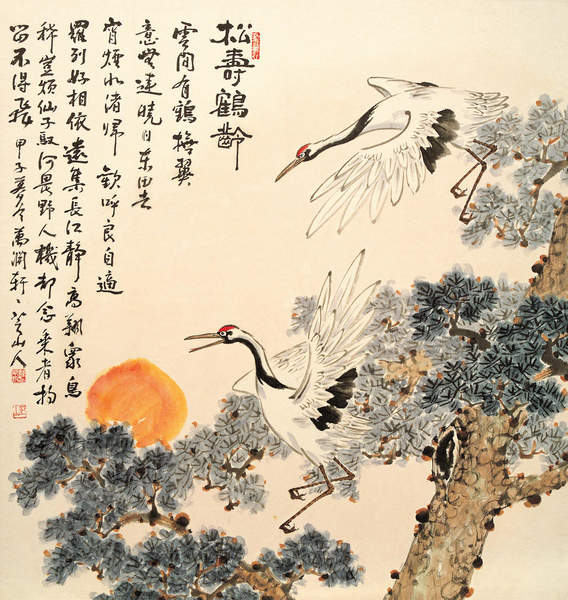 松壽鶴齡
雲間有鶴撫翼
意無違曉日東田去
宵煙北渚歸 歡呼良自適
羅列好相依遠集長江靜高翔衆鳥
稀豈煩仙子馭何畏野人機却念乘者拘
留不得飛 甲子 萬澗軒 山人